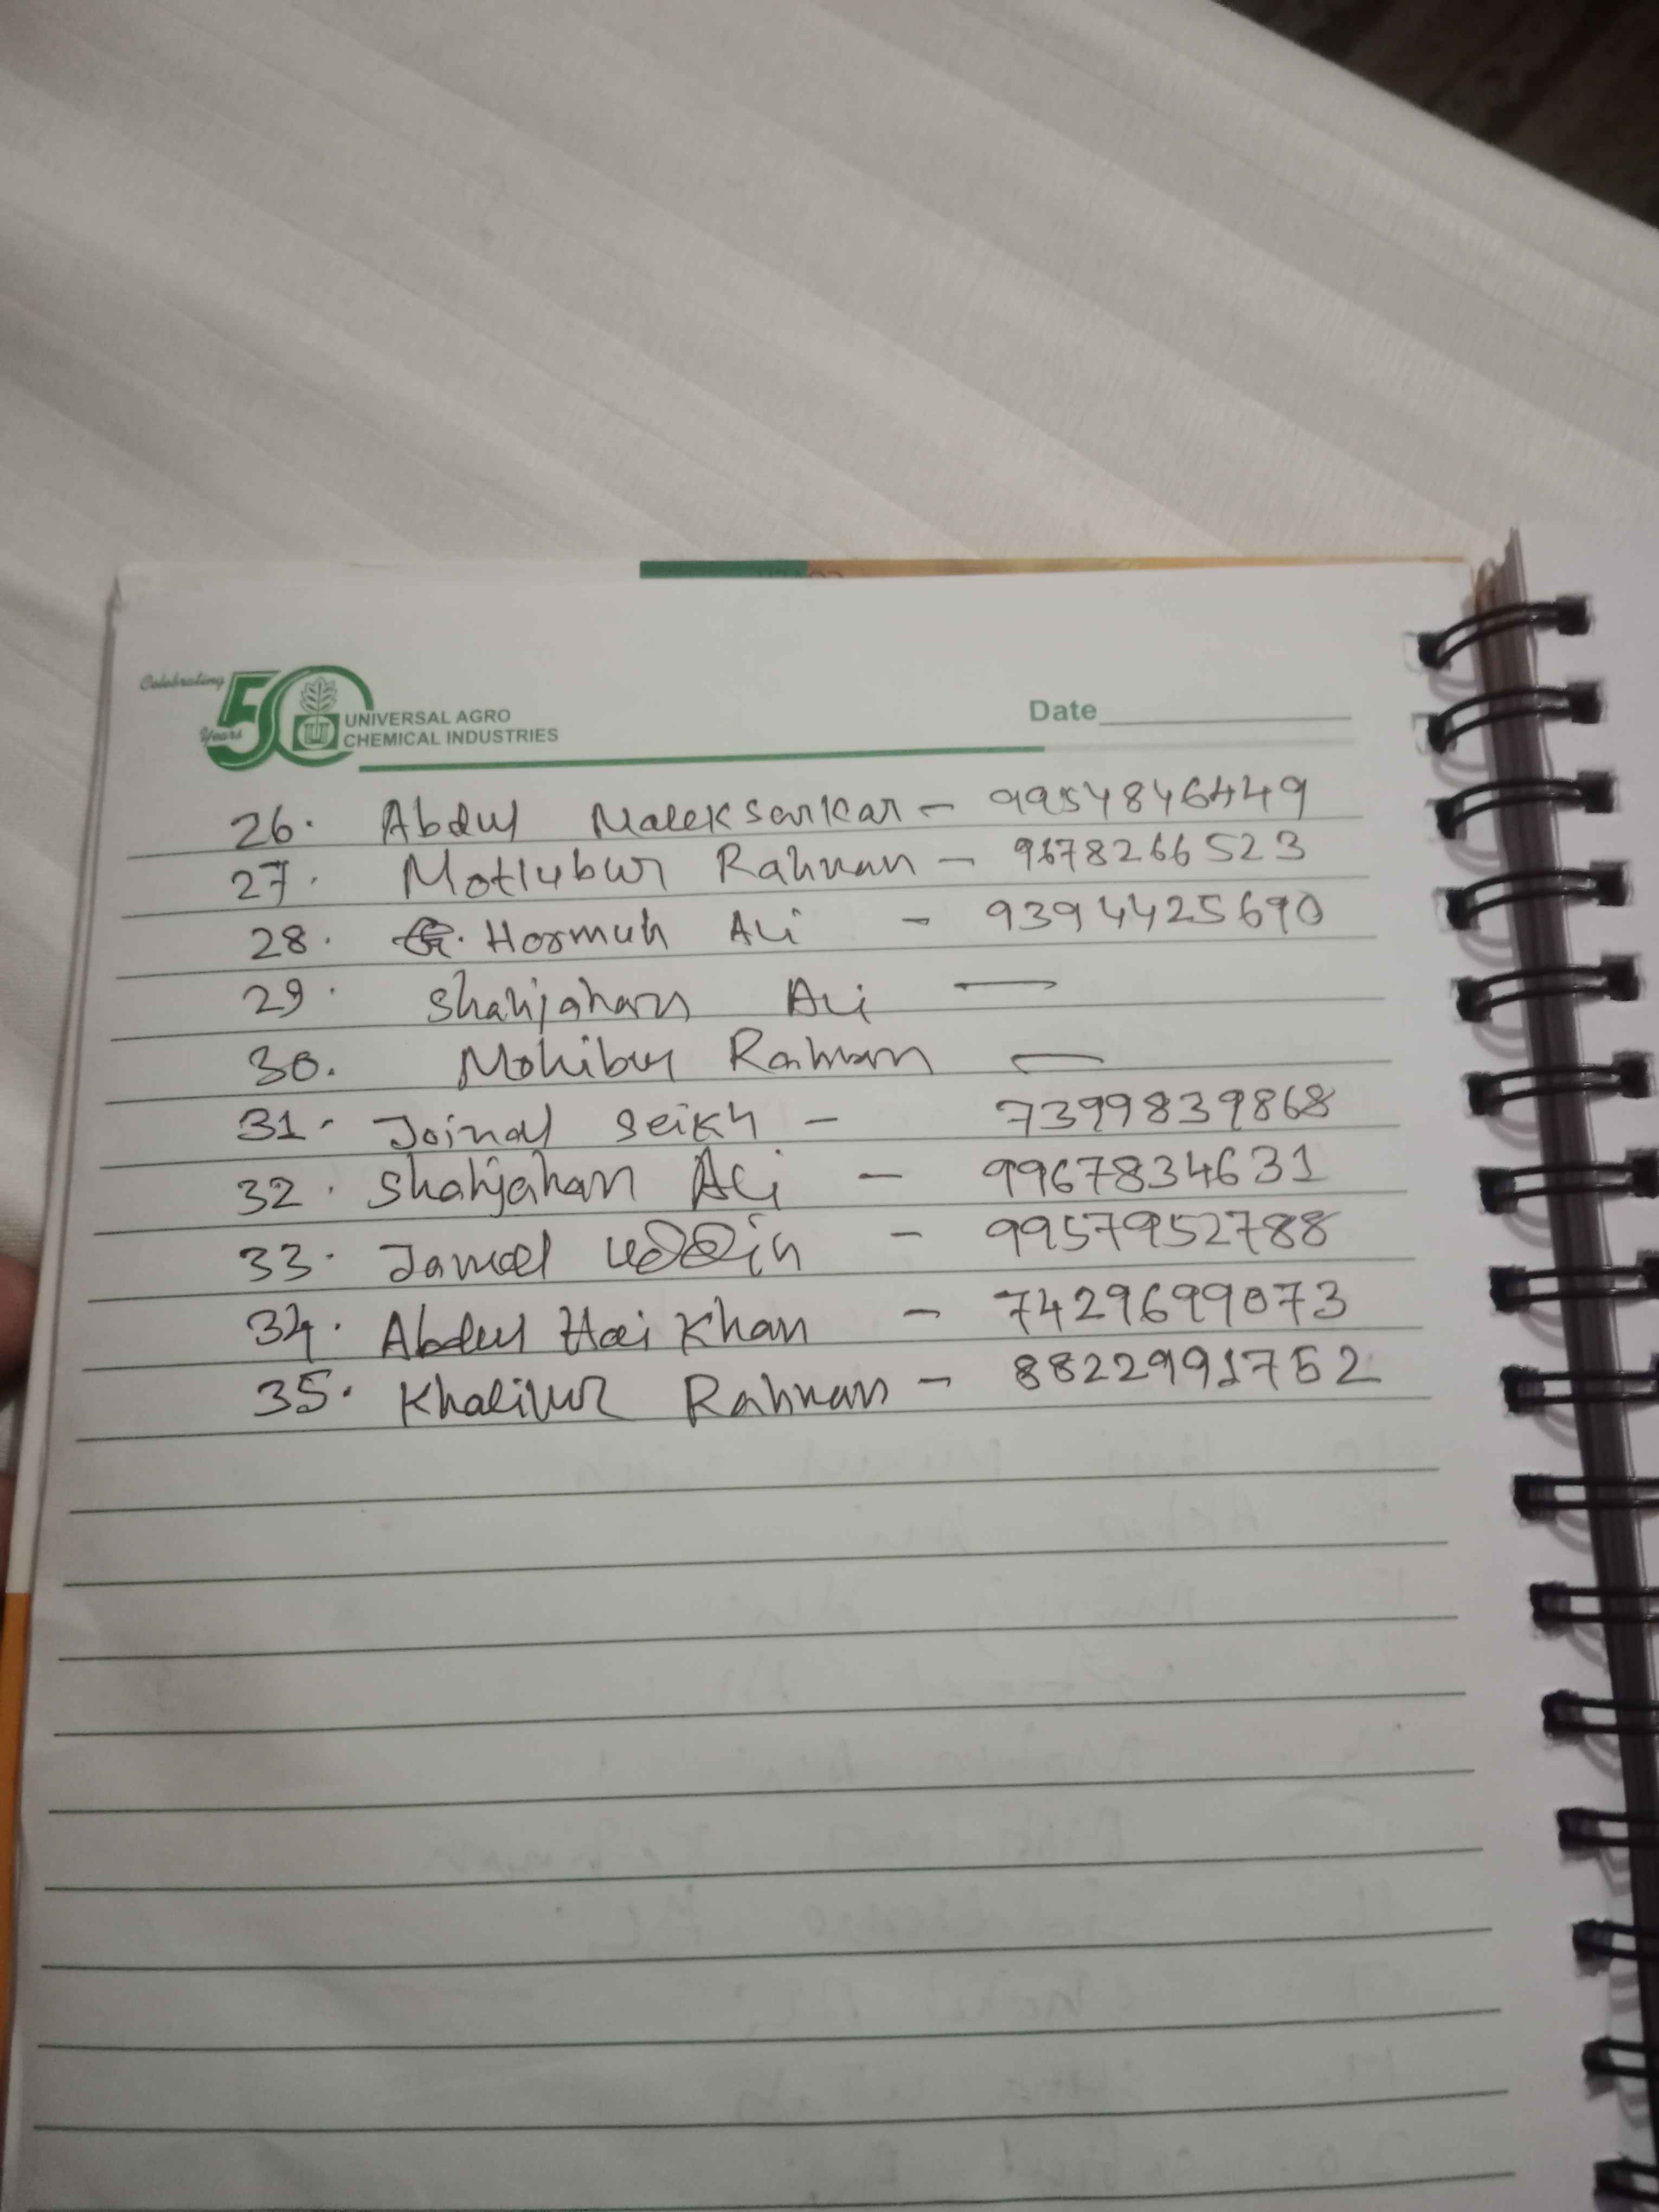 Celebrating
50
Years
UNIVERSAL AGRO
CHEMICAL INDUSTRIES
Date
26. Abdul Malek Sarkar - 9954846449
27. Motlubur Rahman - 9678266523
28. Hormuh Ali - 9394425690
29. Shahjahan Ali —
30. Mohibur Rahman —
31. Joinal Seikh - 7399839868
32. Shahjahan Ali - 9967834631
33. Jamal Uddin - 9957952788
34. Abdul Hai Khan - 7429699073
35. Khalilur Rahman - 8822991752